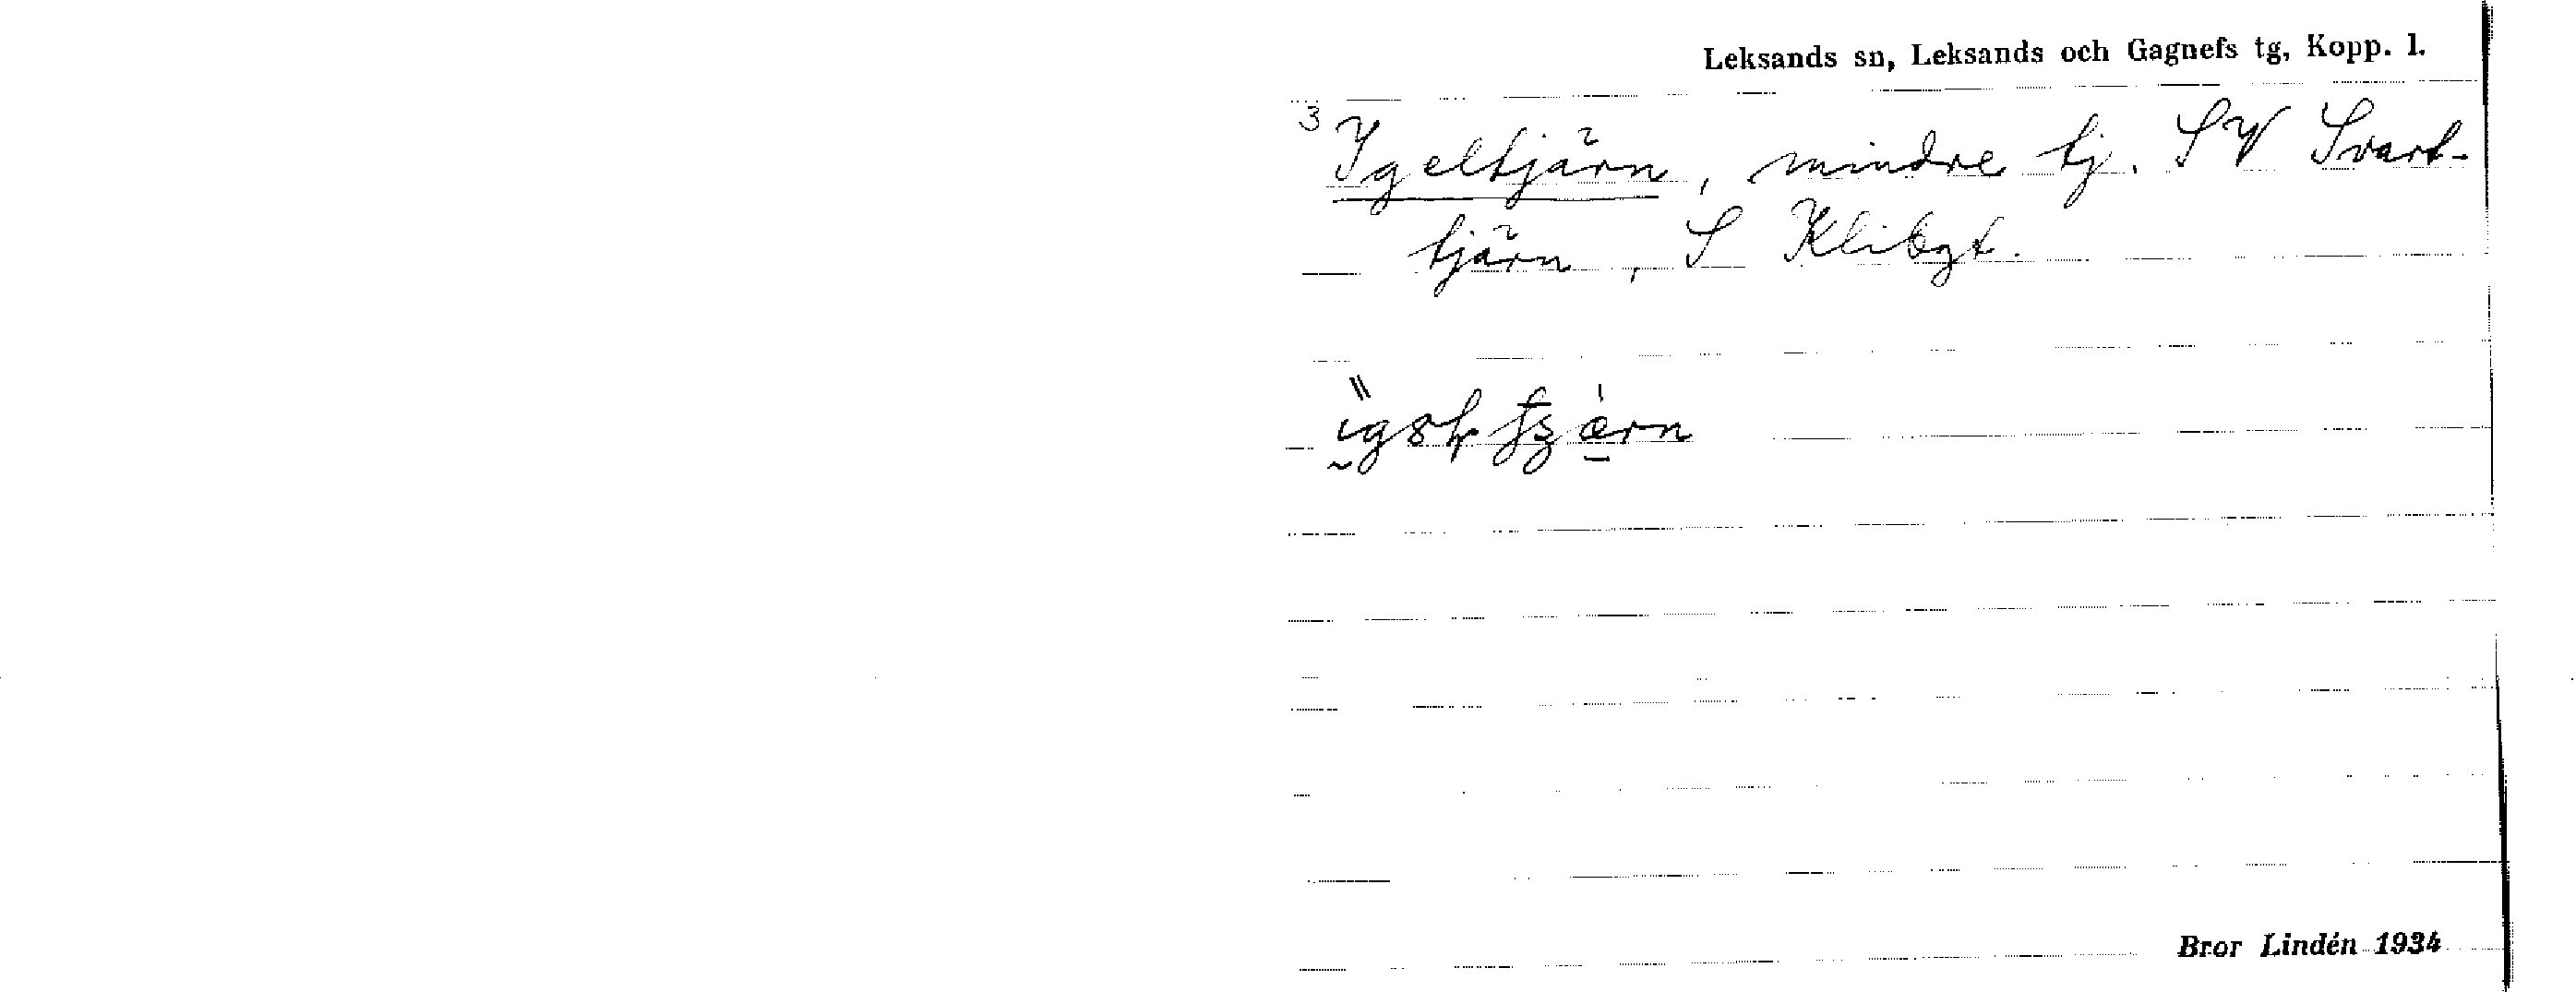 Leksands sn, Leksands och Gagnefs tg, Kopp. l.
3 Igeltjärn, mindre tj. SV Svart-
tjärn, S Klibgt.
Bror Lindén 1934